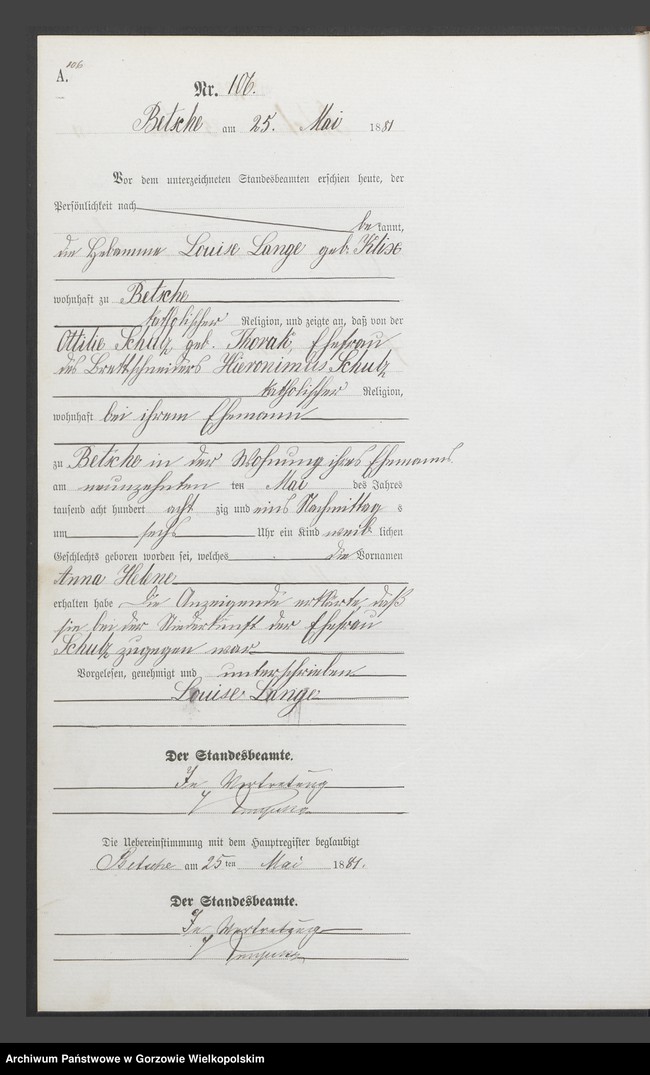 106
A.
Nr. 106.
Betsche am 25. Mai 1881
Vor dem unterzeichneten Standesbeamten erschien heute, der
Persönlichkeit nach
bekannt,
die Hebamme Louise Lange geb. Klix
wohnhaft zu Betsche
katholischer Religion, und zeigte an, daß von der
Ottilie Schulz, geb. Thorak, Ehefrau
des Brettschneiders Hieronimus Schulz
katholischer Religion,
wohnhaft bei ihrem Ehemann
zu Betsche in der Wohnung ihres Ehemanns
am neunzehnten ten Mai des Jahres
tausend acht hundert achtzig und eins Nachmittags
um sechs Uhr ein Kind weiblichen
Geschlechts geboren worden sei, welches die Vornamen
Anna Helene
erhalten habe Die Anzeigende erklärte, daß
sie bei der Niederkunft der Ehefrau
Schulz zugegen war
Vorgelesen, genehmigt und unterschrieben
Louise Lange
Der Standesbeamte.
In Vertretung
Die Uebereinstimmung mit dem Hauptregister beglaubigt
Betsche am 25ten Mai 1881.
Der Standesbeamte.
In Vertretung
Archiwum Państwowe w Gorzowie Wielkopolskim